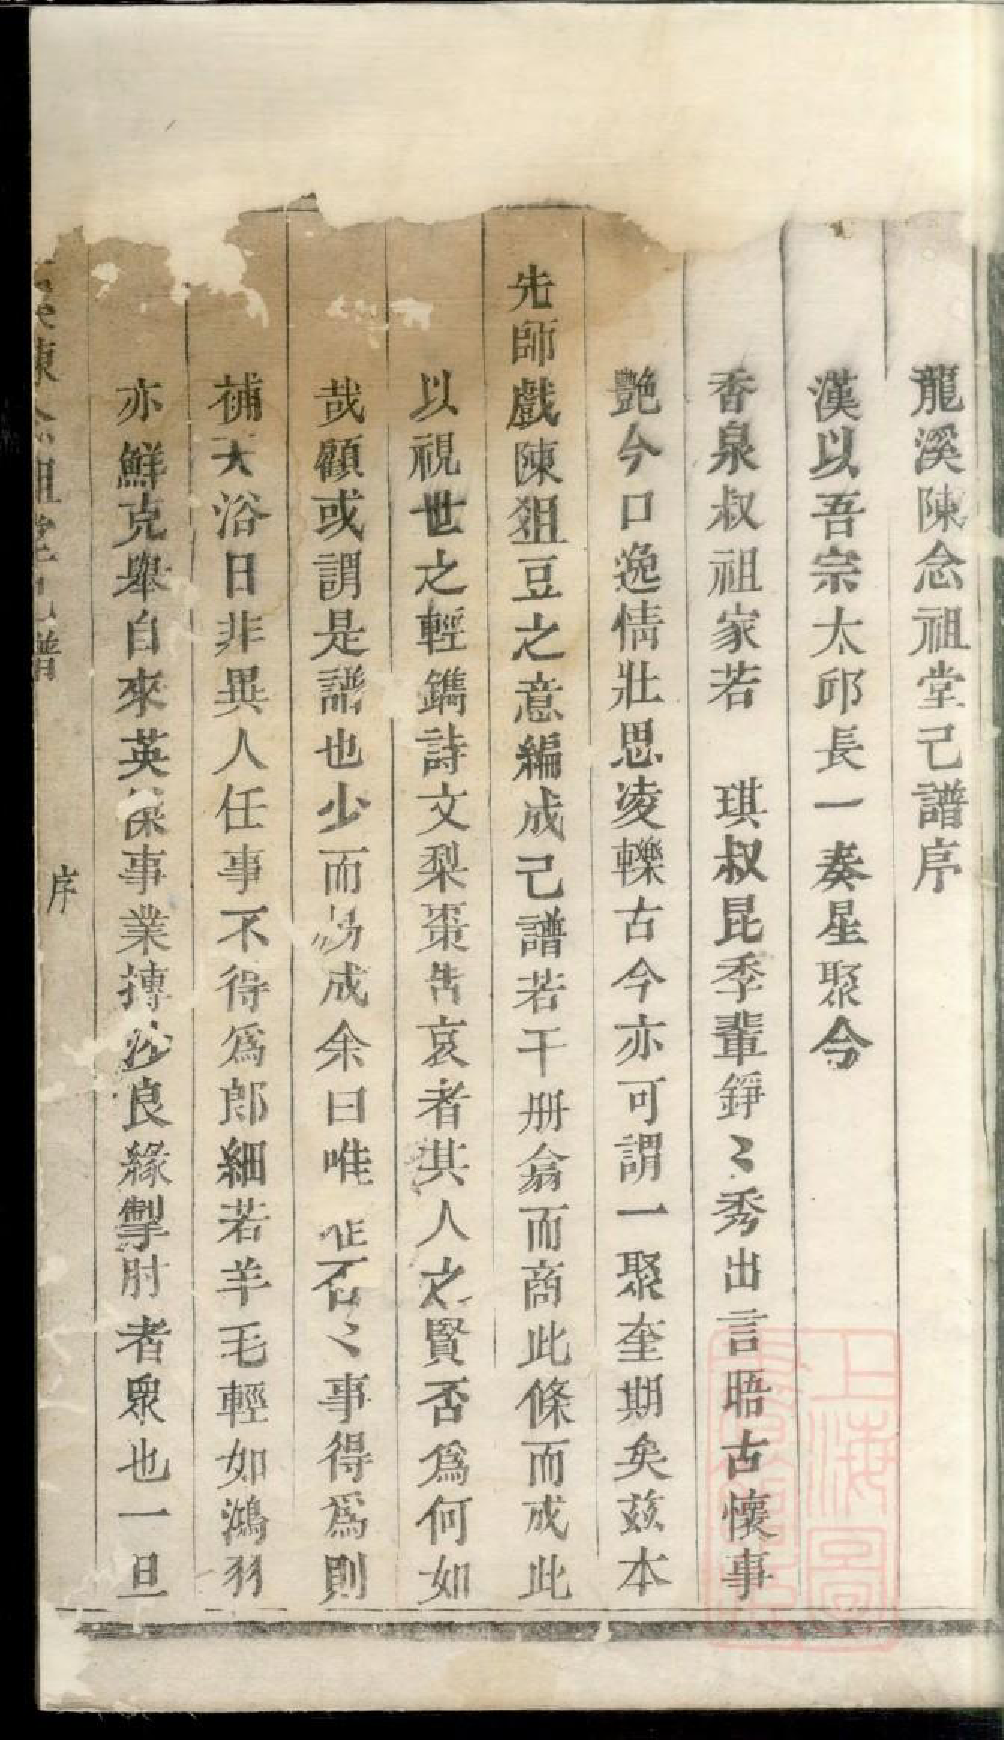 龍溪陳念祖堂己譜序
漢以吾宗太邱長一奏星聚今
香泉叔祖家若　琪叔昆季輩錚〻秀出言晤古懷事
艷今口逸情壯思凌轢古今亦可謂一聚奎期矣茲本
先師戲陳狙豆之意編成己譜若干册翕而商此條而成此
以視世之輕鐫詩文梨棗告哀者其人之賢否爲何如
哉顧或謂是譜也少而易成余曰唯否〻事得爲則
補天浴日非異人任事不得爲郎細若羊毛輕如鴻羽
亦鮮克舉自來英傑事業摶沙良緣掣肘者衆也一旦
陳念祖堂己譜
序
上海圖書館藏